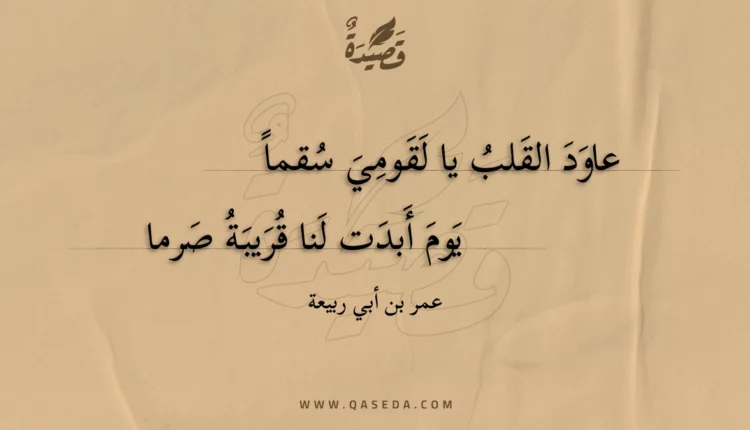 قَصِيدَةٌ
عاوَدَ القَلبُ يا لَقَومِيَ سُقماً
يَومَ أَبدَت لَنا قُرَيبَةُ صَرما
عمر بن أبي ربيعة
WWW.QASEDA.COM